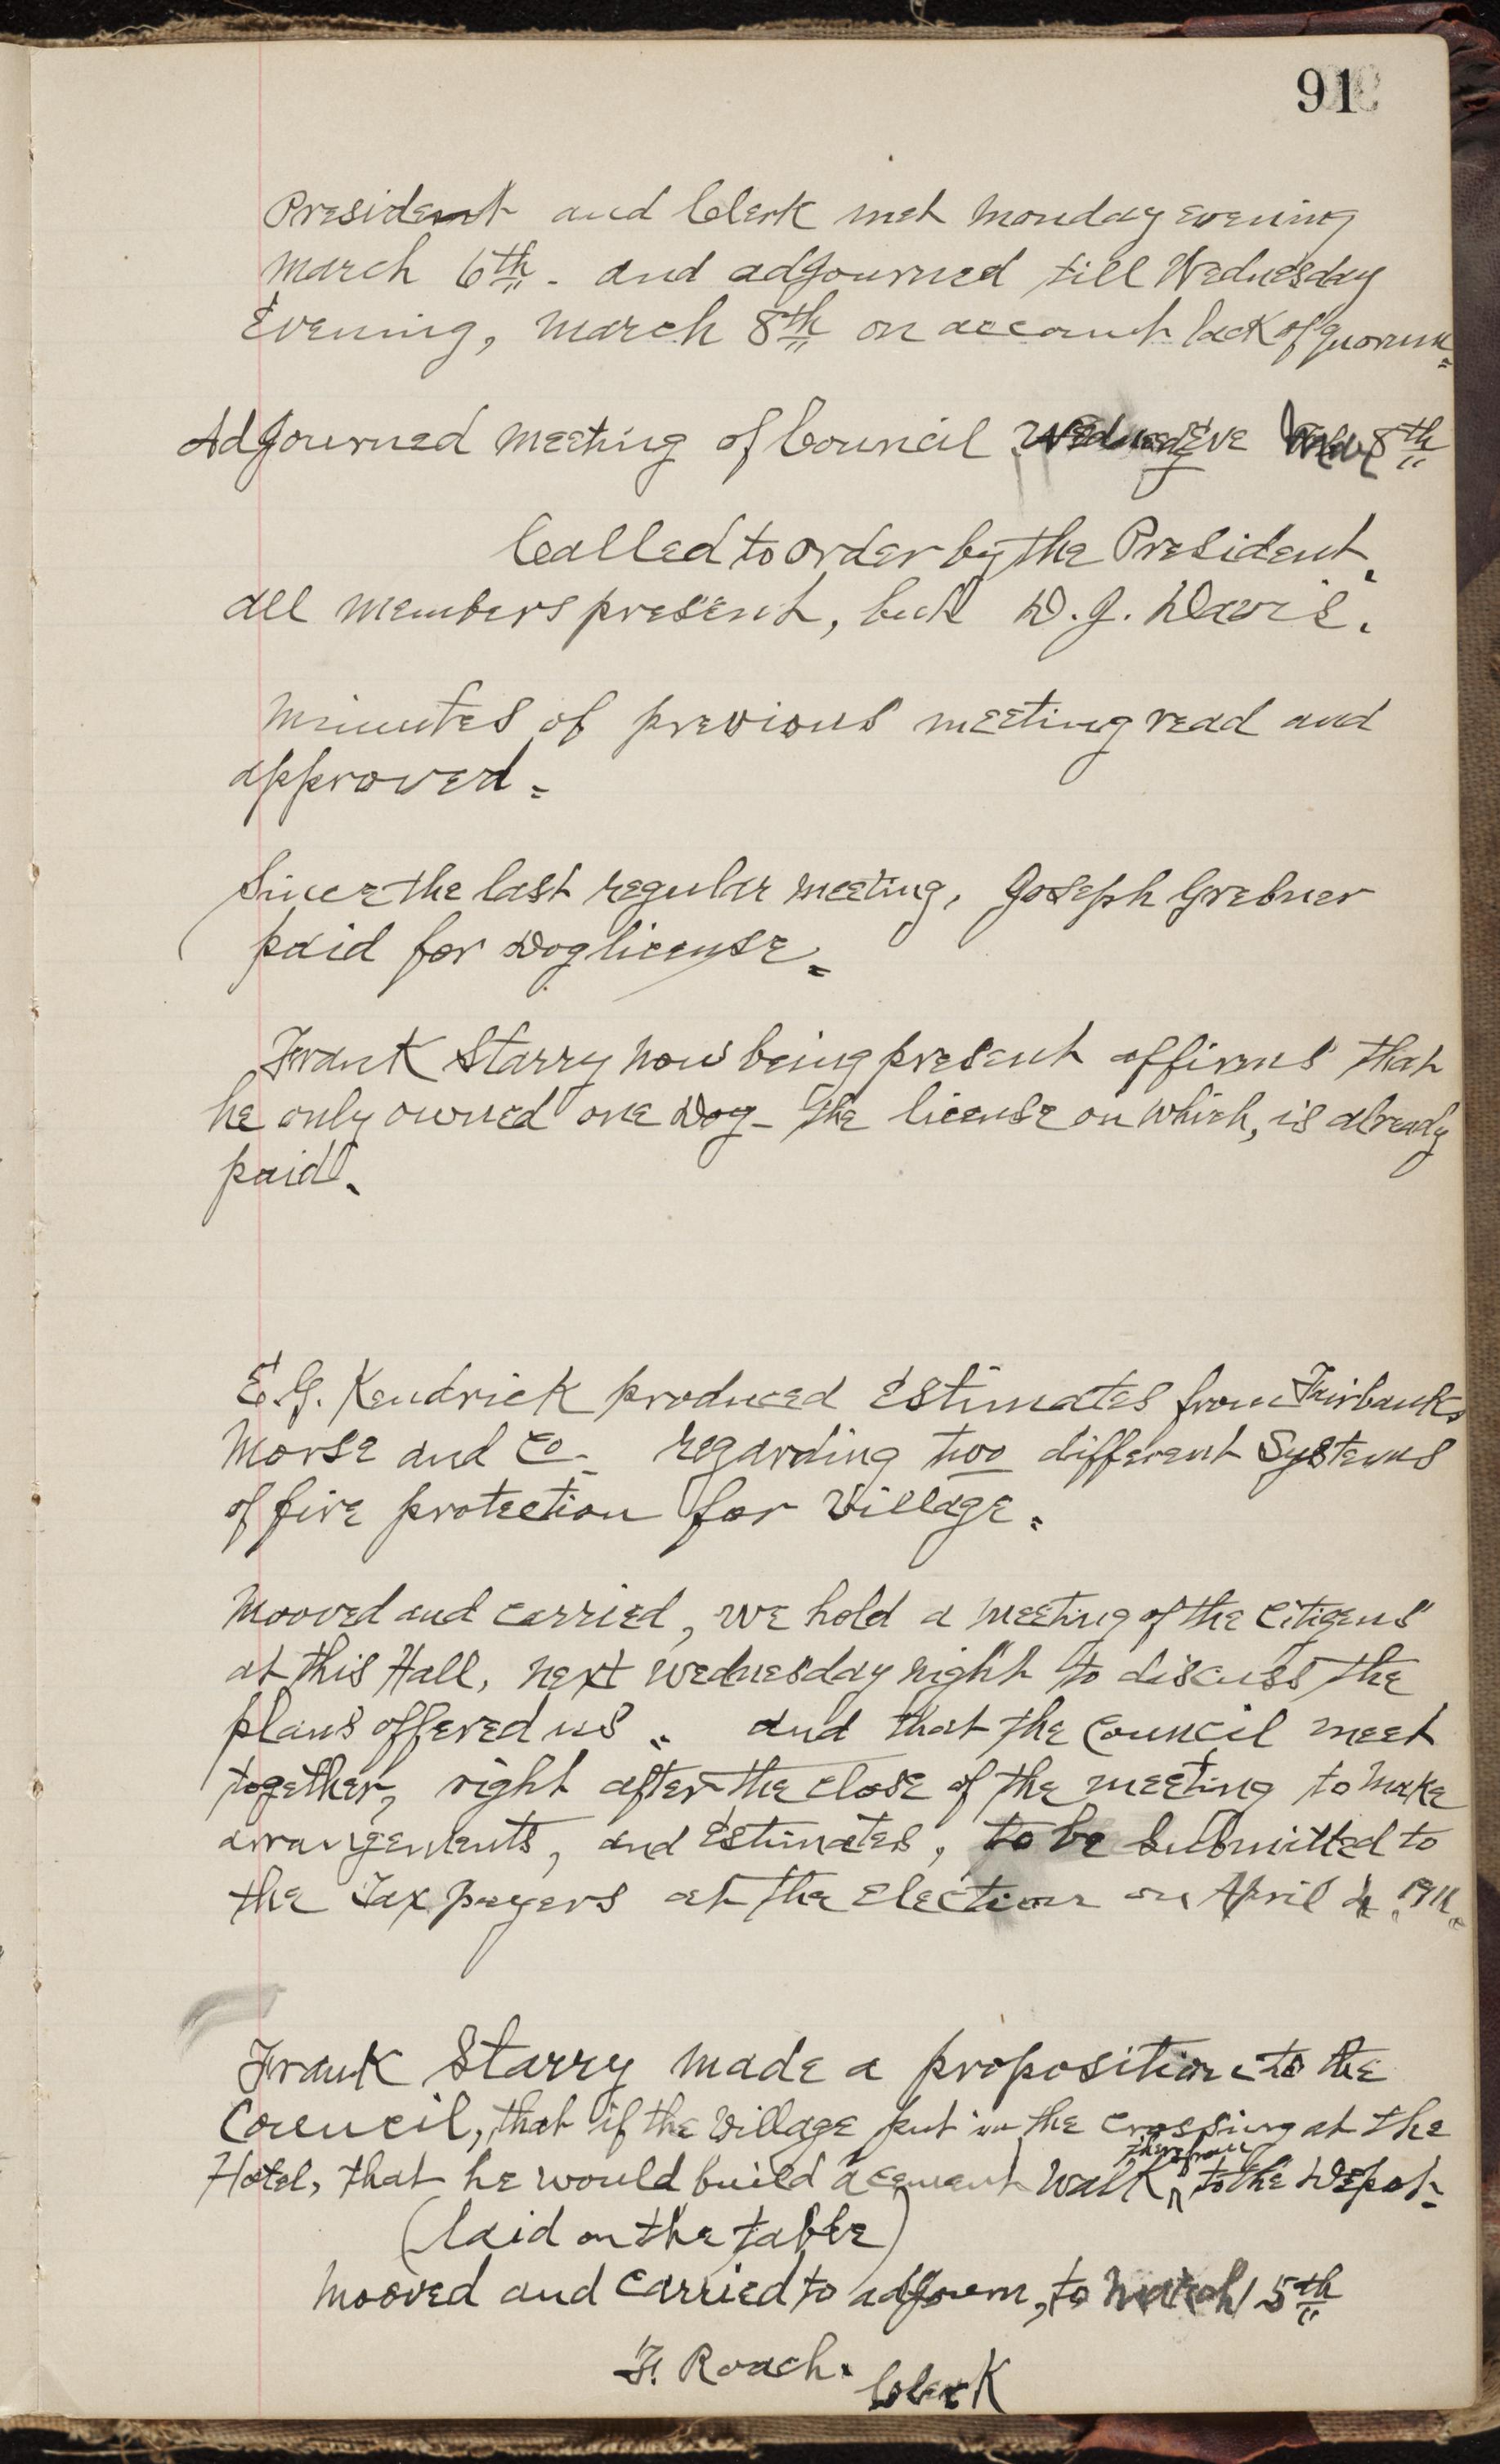 91
President and Clerk met Monday Evening
March 6th. and adjourned till Wednesday
Evening, March 8th on account lack of quorum.
Adjourned Meeting of Council Wednesday Eve Mar 8th
Called to order by the President.
All Members present, but D. J. Davis.
Minutes of previous meeting read and
approved.
Since the last regular meeting, Joseph Grebner
paid for Dog license.
Frank Starry now being present affirms that
he only owned one Dog - the license on which, is already
paid.
E. G. Kendrick produced Estimates from Fairbanks
Morse and Co. regarding two different Systems
of fire protection for Village.
Mooved and carried, we hold a meeting of the Citizens
at this Hall, next Wednesday night to discuss the
plans offered us. And that the Council meet
together, right after the close of the meeting to make
arrangements, and Estimates, to be submitted to
the Tax payers at the Election on April 4. 1911.
Frank Starry made a proposition to the
Council, that if the Village put in the crossing at the
Hotel, that he would build a cement walk therefrom to the Depot.
(laid on the table)
Mooved and carried to adjourn, to March 15th
F. Roach. Clerk